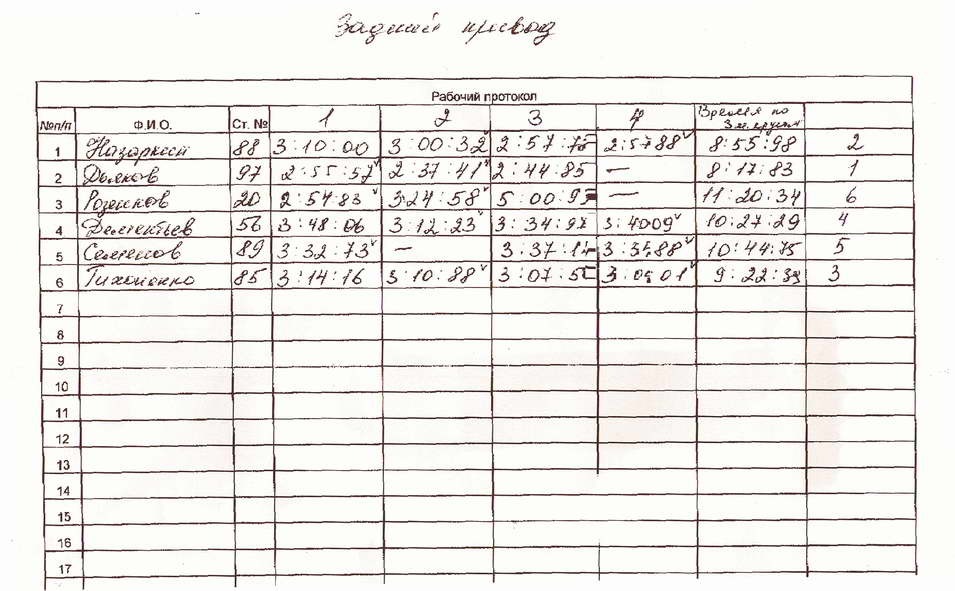 Задний привод
Рабочий протокол
№п/п Ф.И.О. Ст. № 1 2 3 4 Время по 3м кругам
1 Назаркин 88 3:10:00 3:00:32 2:57:78 2:57 88 8:55:98 2
2 Дьяков 97 2:55:57 2:37:41 2:44:85 — 8:17:83 1
3 20 2:54 83 3:24:58 5:00:93 — 11:20:34 6
4 Дементьев 56 3:48:06 3:12:23 3:34:97 3:40 09 10:27:29 4
5 Семенов 89 3:32:73 — 3:37:14 3:35:88 10:44:75 5
6 Тихоненко 85 3:14:16 3:10:88 3:07:50 3:05 01 9:22:39 3
7
8
9
10
11
12
13
14
15
16
17